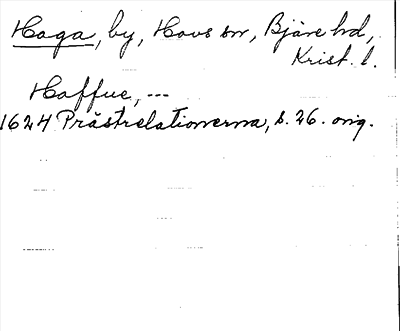 Haga, by, Hovs sn, Bjäre hd,
Krist. l.
Haffue, ---
1624 Prästrelationerna, s. 26. orig.